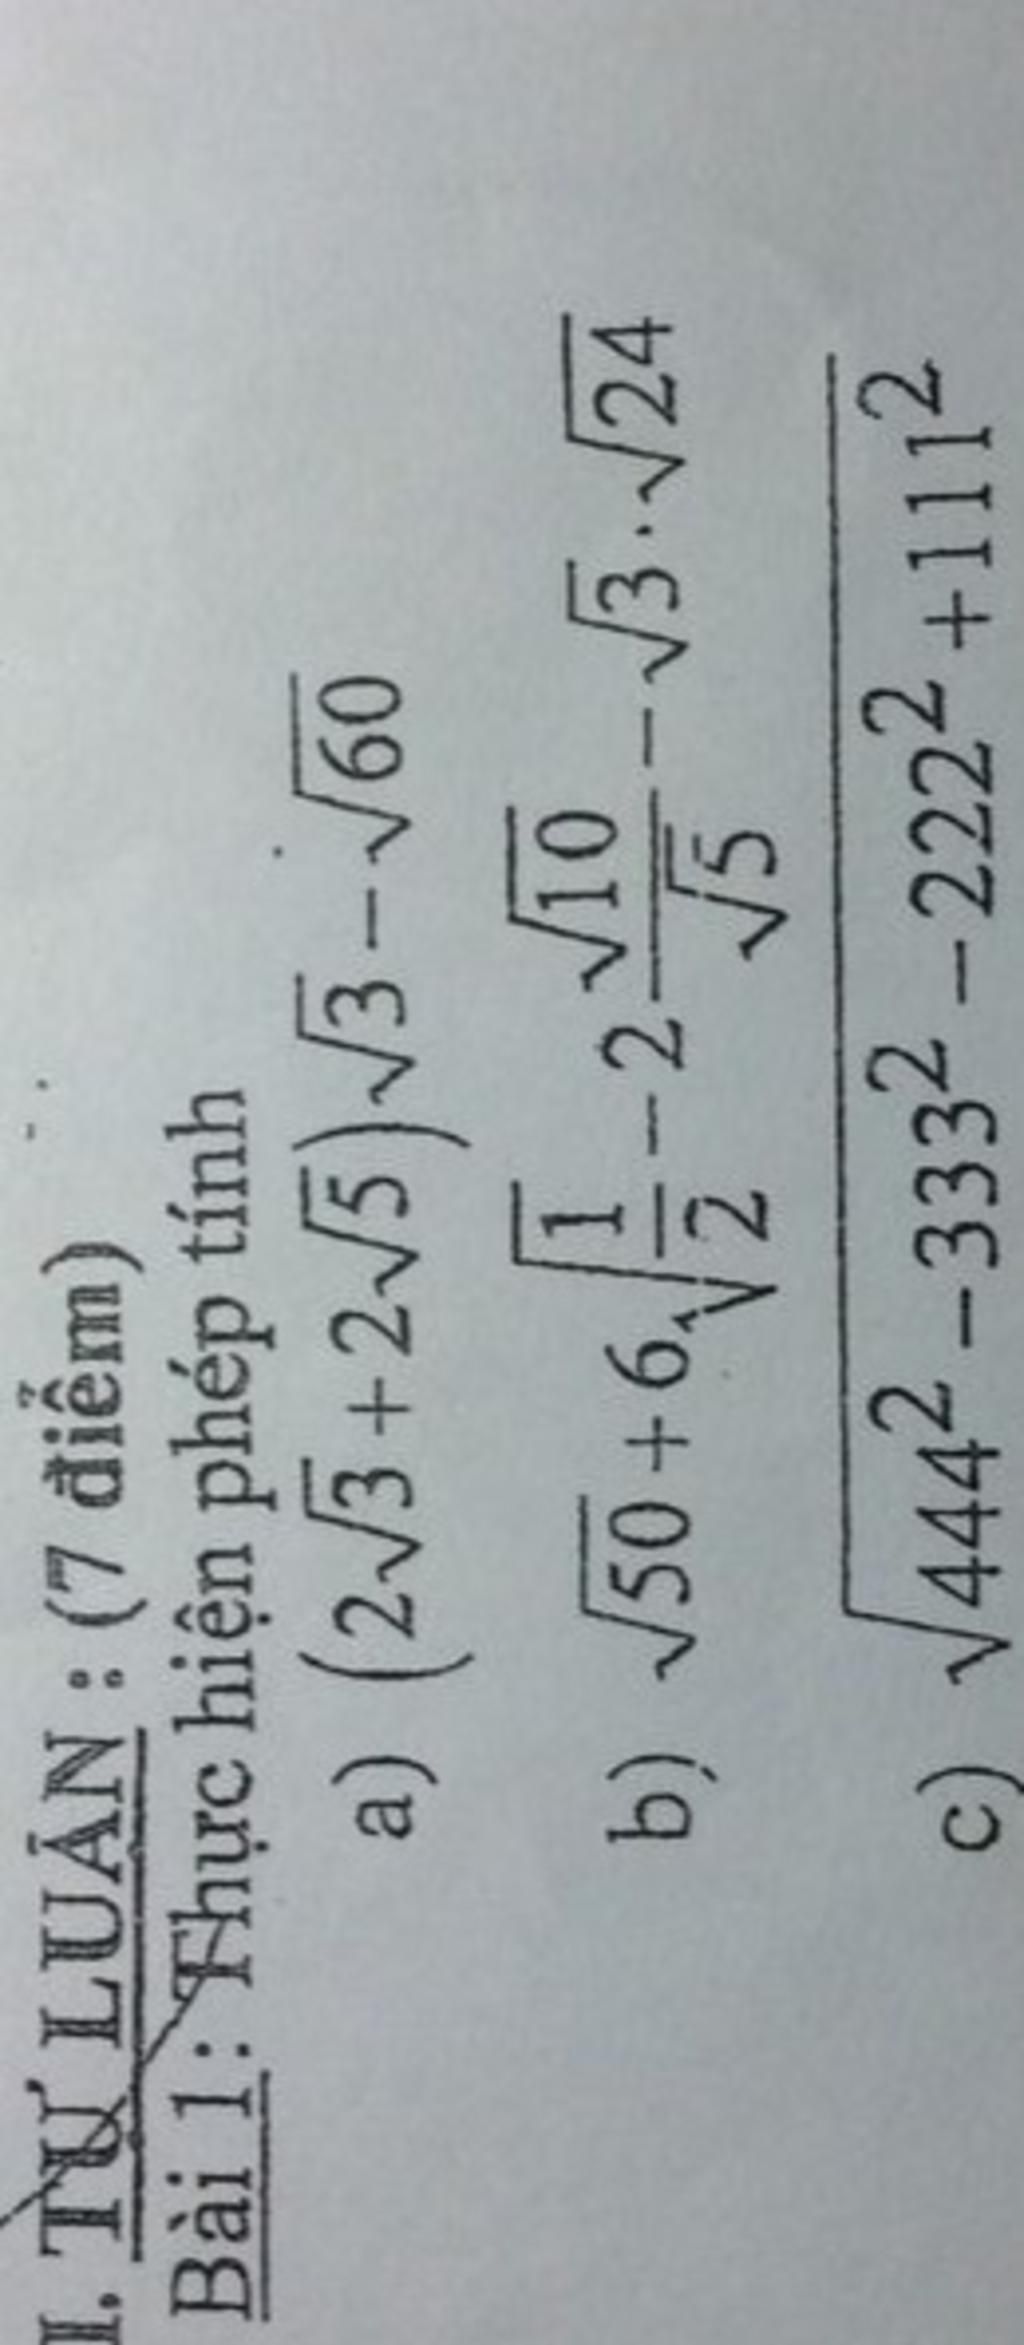 II. TỰ LUẬN : (7 điểm)
Bài 1: Thực hiện phép tính
a) (2√3 + 2√5)√3 − √60
b) √50 + 6√(1/2) − 2 √10/√5 − √3 . √24
c) √(444² − 333² − 222² + 111²)